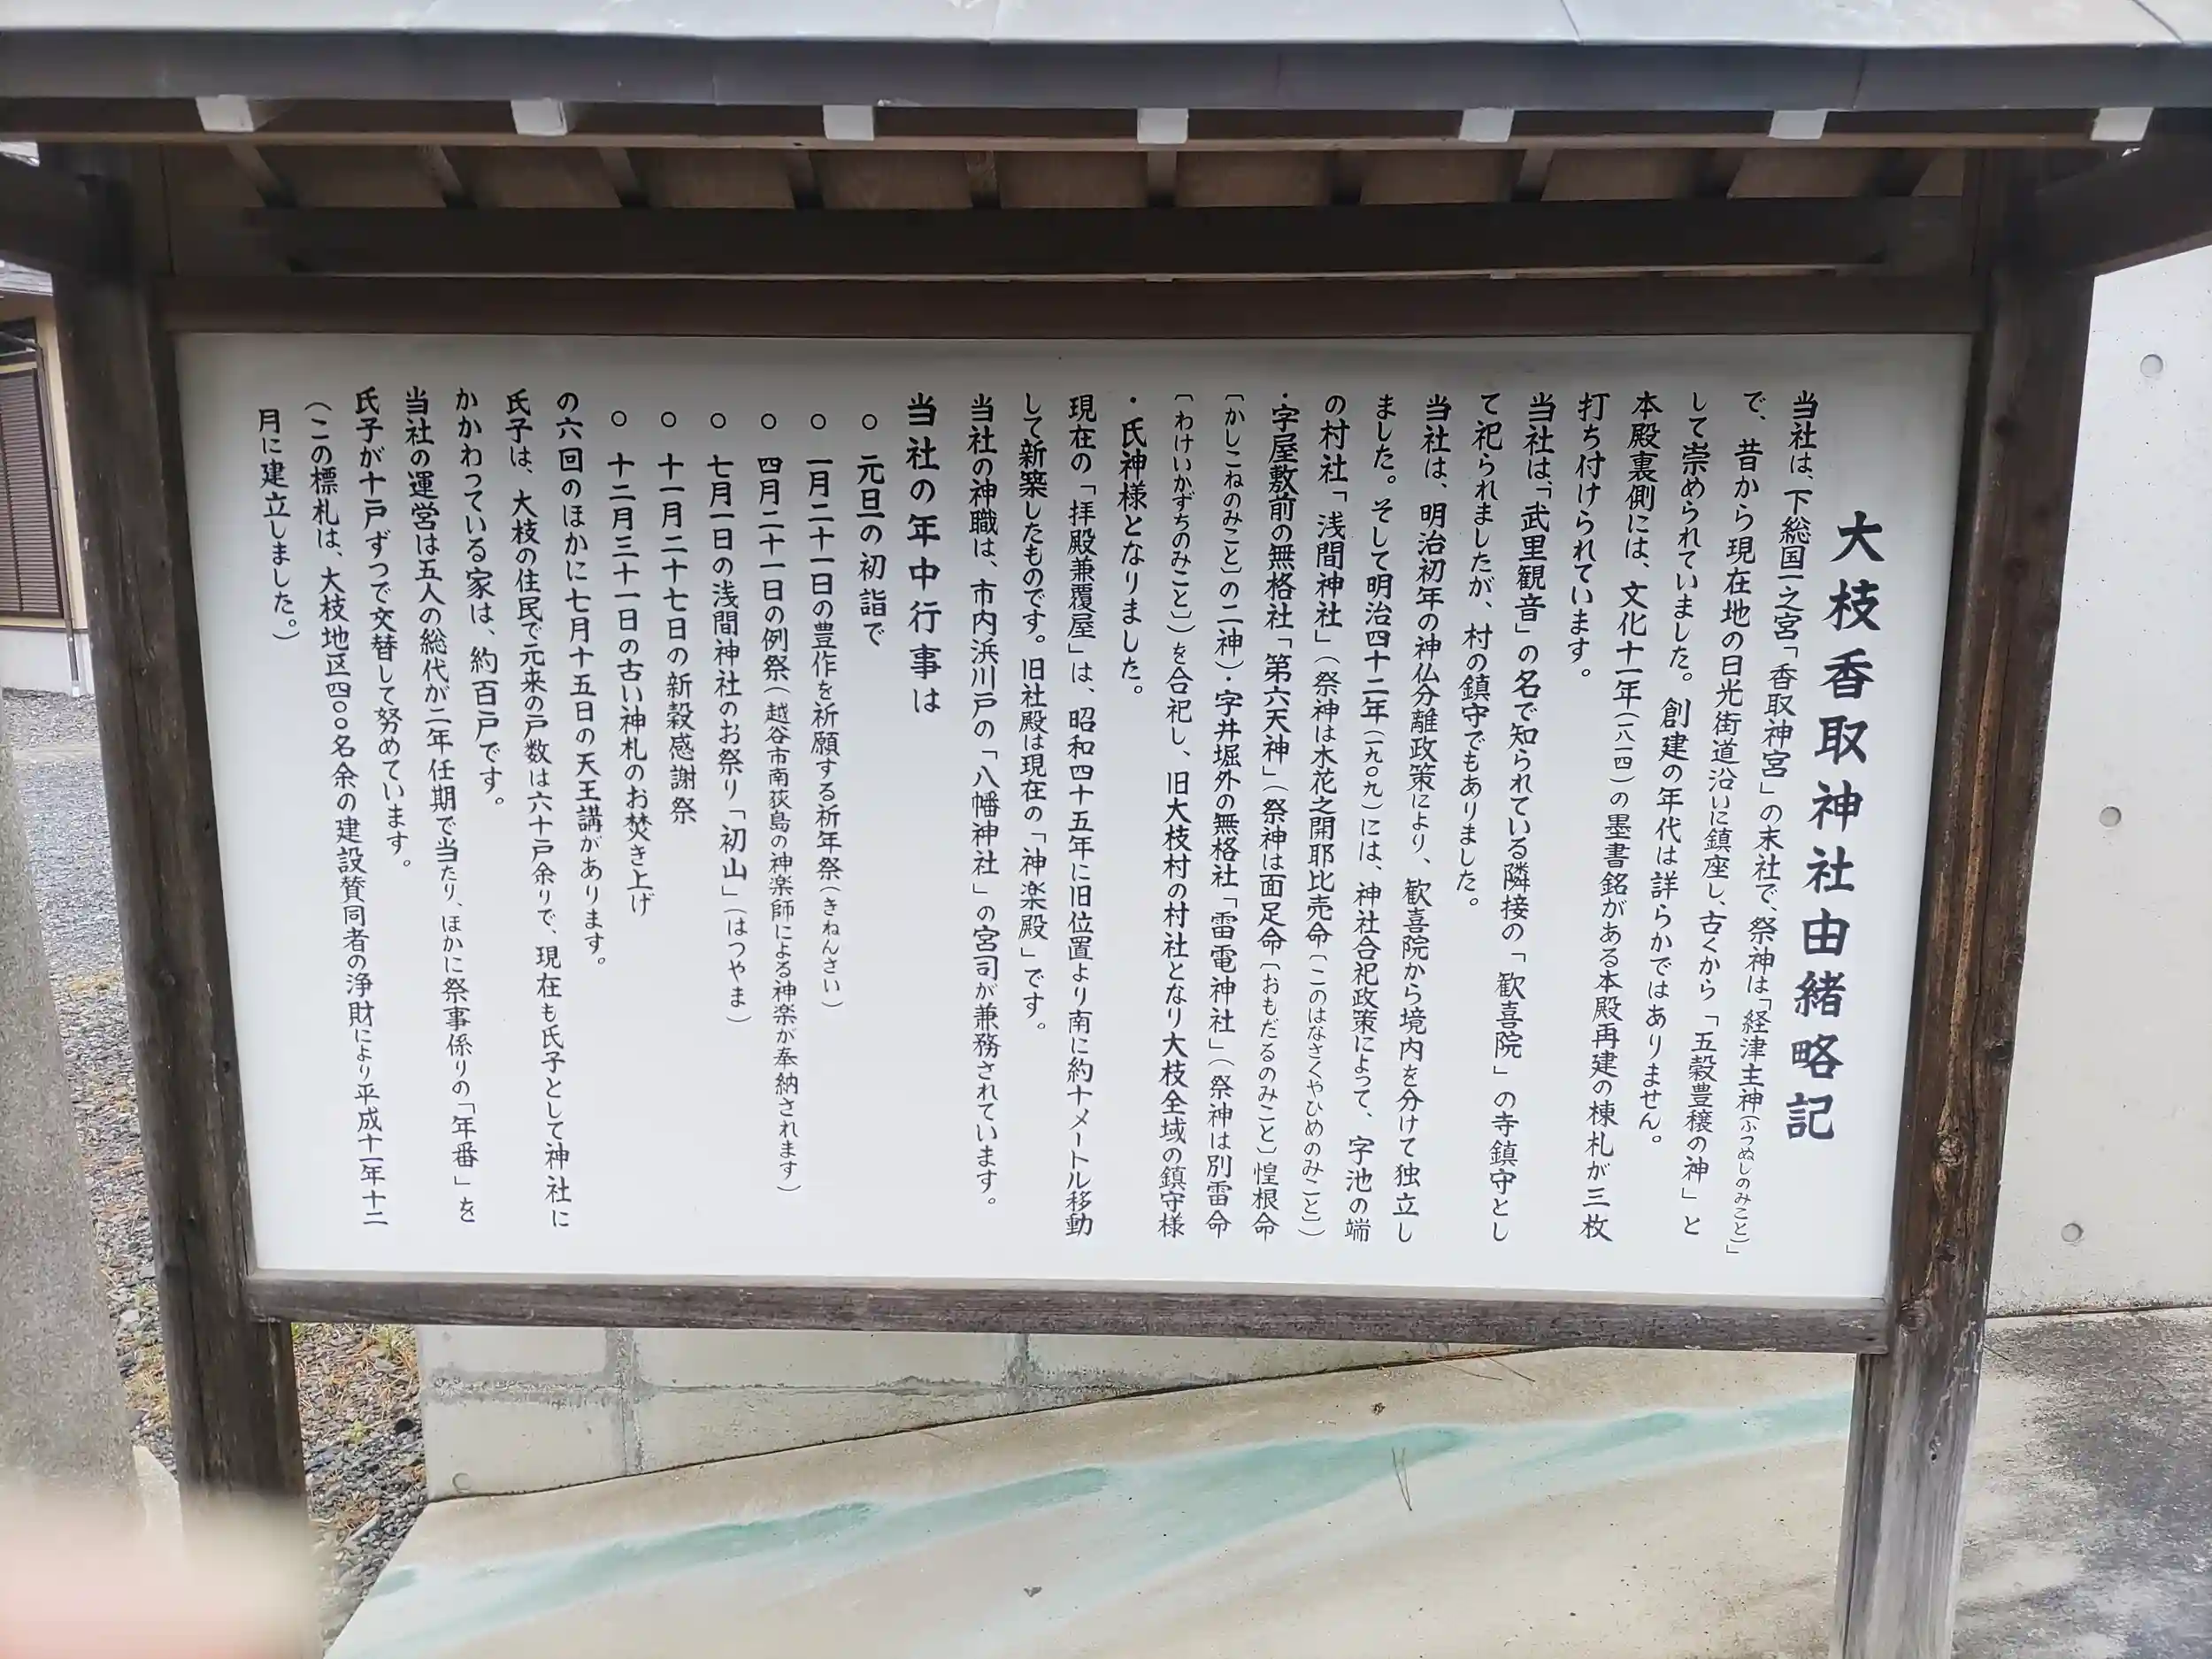 大枝香取神社由緒略記
当社は、下総国一之宮「香取神宮」の末社で、祭神は「経津主神（ふつぬしのみこと）」
で、昔から現在地の日光街道沿いに鎮座し、古くから「五穀豊穣の神」と
して崇められていました。創建の年代は詳らかではありません。
本殿裏側には、文化十一年（一八一四）の墨書銘がある本殿再建の棟札が三枚
打ち付けられています。
当社は、「武里観音」の名で知られている隣接の「歓喜院」の寺鎮守とし
て祀られましたが、村の鎮守でもありました。
当社は、明治初年の神仏分離政策により、歓喜院から境内を分けて独立し
ました。そして明治四十二年（一九〇九）には、神社合祀政策によって、字池の端
の村社「浅間神社」（祭神は木花之開耶比売命〔このはなさくやひめのみこと〕）
・字屋敷前の無格社「第六天神」（祭神は面足命〔おもだるのみこと〕惶根命
〔かしこねのみこと〕の二神）・字井堀外の無格社「雷電神社」（祭神は別雷命
〔わけいかずちのみこと〕）を合祀し、旧大枝村の村社となり大枝全域の鎮守様
・氏神様となりました。
現在の「拝殿兼覆屋」は、昭和四十五年に旧位置より南に約十メートル移動
して新築したものです。旧社殿は現在の「神楽殿」です。
当社の神職は、市内浜川戸の「八幡神社」の宮司が兼務されています。
当社の年中行事は
○ 元旦の初詣で
○ 一月二十一日の豊作を祈願する祈年祭（きねんさい）
○ 四月二十一日の例祭（越谷市南荻島の神楽師による神楽が奉納されます）
○ 七月一日の浅間神社のお祭り「初山」（はつやま）
○ 十一月二十七日の新穀感謝祭
○ 十二月三十一日の古い神札のお焚き上げ
の六回のほかに七月十五日の天王講があります。
氏子は、大枝の住民で元来の戸数は六十戸余りで、現在も氏子として神社に
かかわっている家は、約百戸です。
当社の運営は五人の総代が二年任期で当たり、ほかに祭事係りの「年番」を
氏子が十戸ずつで交替して努めています。
（この標札は、大枝地区四〇〇名余の建設賛同者の浄財により平成十一年十二
月に建立しました。）